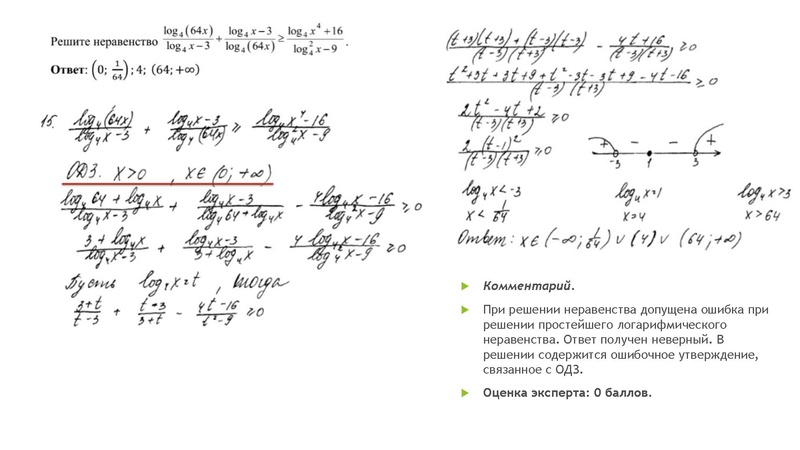 Решите неравенство log₄(64x)/(log₄x−3) + (log₄x−3)/log₄(64x) ≥ (log₄x⁴+16)/(log₄²x−9).
Ответ: (0; 1/64); 4; (64;+∞)
15. log₄(64x)/(log₄x−3) + (log₄x−3)/(log₄(64x)) ≥ (log₄x⁴−16)/(log₄²x−9)
ОДЗ. x>0 , x∈(0;+∞)
(log₄64+log₄x)/(log₄x−3) + (log₄x−3)/(log₄64+log₄x) − (4log₄x−16)/(log₄²x−9) ≥0
(3+log₄x)/(log₄x−3) + (log₄x−3)/(3+log₄x) − (4log₄x−16)/(log₄²x−9) ≥0
Пусть log₄x=t , тогда
(3+t)/(t−3) + (t−3)/(3+t) − (4t−16)/(t²−9) ≥0
((t+3)(t+3)+(t−3)(t−3))/((t−3)(t+3)) − (4t+16)/((t−3)(t+3)) ≥0
(t²+3t+3t+9+t²−3t−3t+9−4t−16)/((t−3)(t+3)) ≥0
(2t²−4t+2)/((t−3)(t+3)) ≥0
2(t−1)²/((t−3)(t+3)) ≥0
+ − − +
−3 1 3
log₄x<−3 log₄x=1 log₄x>3
x<1/64 x=4 x>64
Ответ: x∈(−∞;1/64)∪(4)∪(64;+∞)
Комментарий.
При решении неравенства допущена ошибка при
решении простейшего логарифмического
неравенства. Ответ получен неверный. В
решении содержится ошибочное утверждение,
связанное с ОДЗ.
Оценка эксперта: 0 баллов.